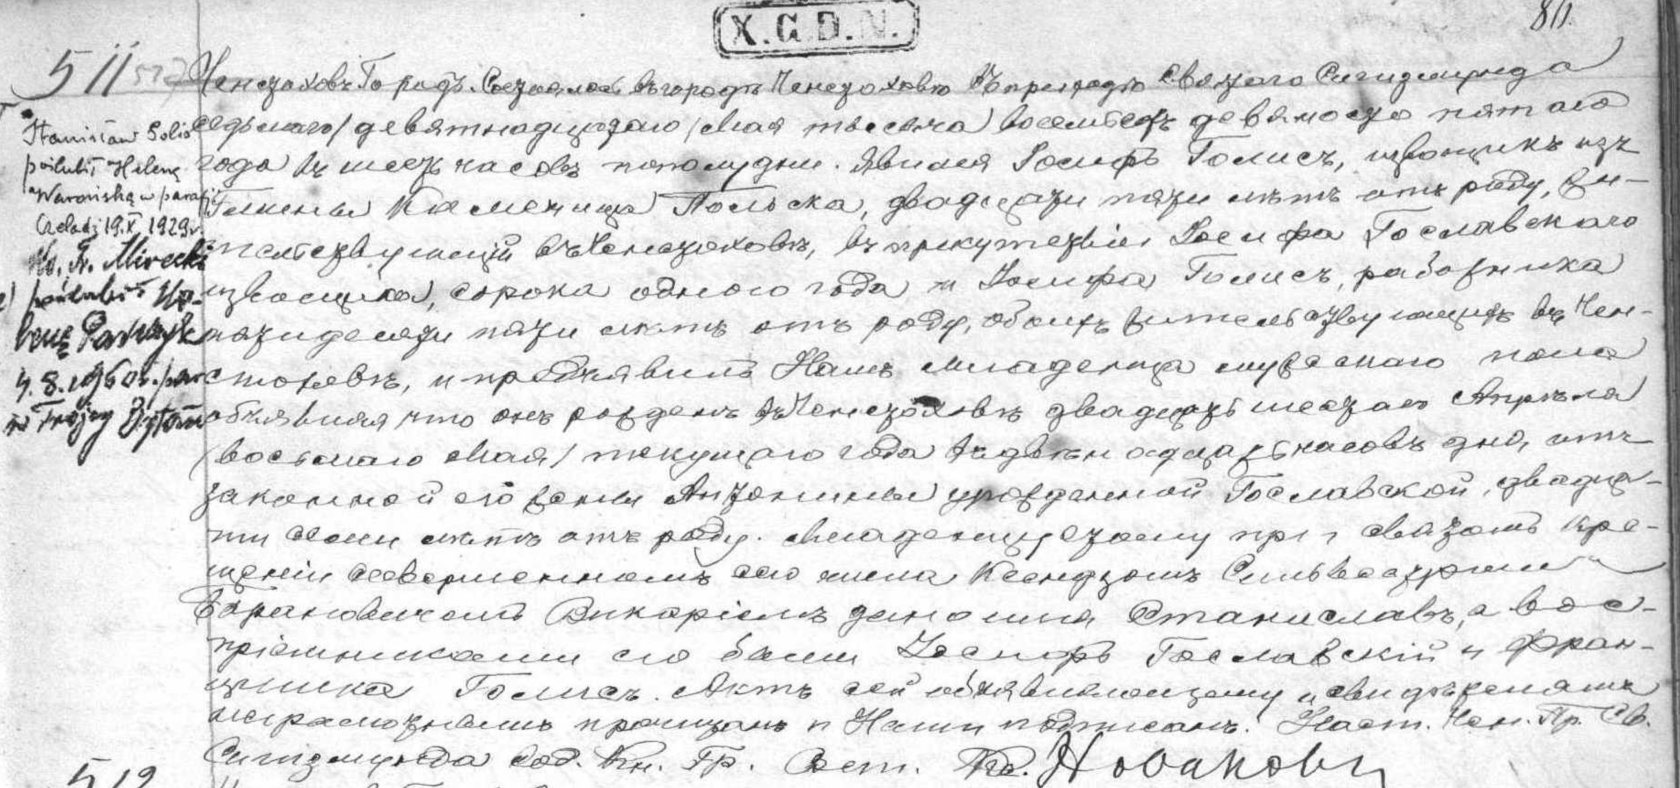 X.G.D.N.
80.
511
Ченстоховъ Городъ. Состоялось въ городѣ Ченстоховѣ въ приходѣ Святаго Сигизмунда
седьмаго /девятнадцатаго/ Мая тысяча восемьсотъ девяносто пятаго
года въ шесть часовъ пополудни. Явился Іосифъ Голисъ, извощикъ изъ
Гмины Каменица Польска, двадцати пяти лѣтъ отъ роду, жи-
тельствующій въ Ченстоховѣ, въ присутствіи Іосифа Гославскаго
извощика, сорока одного года и Іосифа Голисъ, работника
пятидесяти пяти лѣтъ отъ роду, обоихъ жительствующихъ въ Чен-
стоховѣ, и предъявилъ Намъ младенца мужескаго пола
объявляя что онъ рожденъ въ Ченстоховѣ двадцать шестаго Апрѣля
/восьмаго Мая/ текущаго года въ двѣнадцать часовъ дня, отъ
законной его жены Антонины урожденной Гославской, двадца-
ти семи лѣтъ отъ роду. Младенцу этому при святомъ кре-
щеніи совершенномъ сего числа Ксендзомъ Сильвестромъ
Барановичемъ Викаріемъ дано имя Станиславъ, а вос-
пріемниками его были Іосифъ Гославскій и Фран-
цишка Голисъ. Актъ сей объявляющему и свидѣтелямъ
неграмотнымъ прочитанъ и Нами подписанъ. Наст. Чен. Пр. Св.
Сигизмунда Сод. Кн. Гр. Сост. Кс. Новаковъ
Stanisław Golis
poślubił Helenę
Nawrońską w parafii
Czeladź 19.X.1929 r.
Ks. Fr. Mirecki
2) poślubił
Pawlczyk
4.8.1960 r. par.
św Trójcy Bytom
512